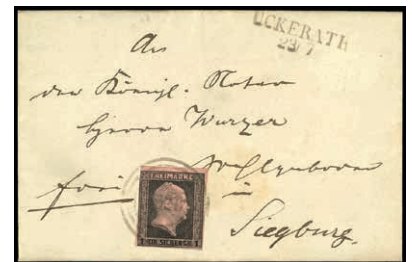 UCKERATH
29/7
An
den Königl. Notar
Herrn Wurzer
Wohlgeboren
frei
in
Siegburg.
FREIMARKE
1 SILBERGR. 1